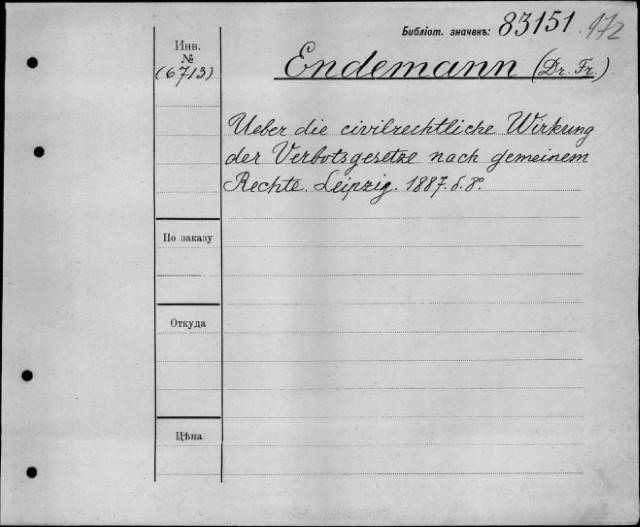 Библіот. значекъ: 83151 .972
Инв.
№
(6713)
Endemann (Dr. Fr.)
Ueber die civilrechtliche Wirkung
der Verbotsgesetze nach gemeinem
Rechte. Leipzig. 1887. 8º.
По заказу
Откуда
Цѣна